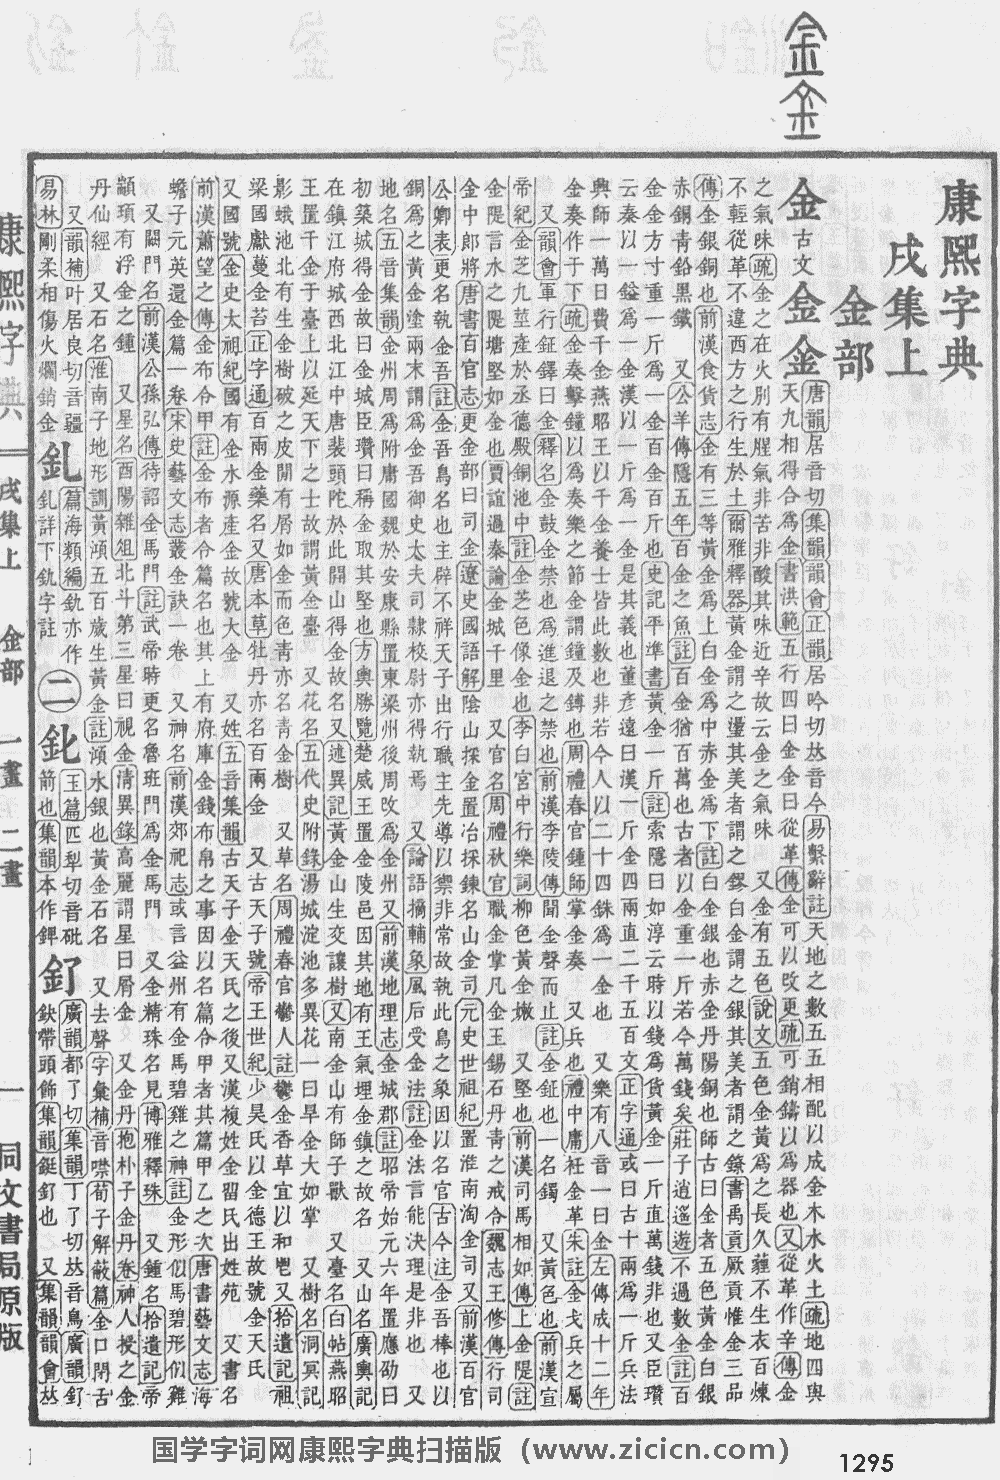 康熙字典
戌集上
金部
金古文𨤾𨥄唐韻居音切集韻韻會正韻居吟切𠀤音今易繫辭註天地之數五五相配以成金木水火土疏地四與
天九相得合爲金書洪範五行四曰金金曰從革傳金可以攺更疏可銷鑄以爲器也又從革作辛傳金
之氣味疏金之在火別有腥氣非苦非酸其味近辛故云金之氣味 又金有五色說文五色金黃爲之長久薶不生衣百煉
不輕從革不違西方之行生於土爾雅釋器黃金謂之璗其美者謂之鏐白金謂之銀其美者謂之鐐書禹貢厥貢惟金三品
傳金銀銅也前漢食貨志金有三等黃金爲上白金爲中赤金爲下註白金銀也赤金丹陽銅也師古曰金者五色黃金白銀
赤銅青鉛黑鐵 又公羊傳隱五年百金之魚註百金猶百萬也古者以金重一斤若今萬錢矣莊子逍遙遊不過數金註百
金金方寸重一斤爲一金百金百斤也史記平準書黃金一斤註索隱曰如淳云時以錢爲貨黃金一斤直萬錢非也又臣瓚
云秦以一鎰爲一金漢以一斤爲一金是其義也董彥遠曰漢一斤金四兩直二千五百文正字通或曰古十兩爲一斤兵法
興師一萬日費千金燕昭王以千金養士皆此數也非若今人以二十四銖爲一金也 又樂有八音一曰金左傳成十二年
金奏作于下疏金奏擊鐘以爲奏樂之節金謂鐘及鎛也周禮春官鍾師掌金奏 又兵也禮中庸衽金革朱註金戈兵之屬
又韻會軍行鉦鐸曰金釋名金鼓金禁也爲進退之禁也前漢李陵傳聞金聲而止註金鉦也一名鐲 又黃色也前漢宣
帝紀金芝九莖產於丞德殿銅池中註金芝色像金也李白宮中行樂詞柳色黃金嫩 又堅也前漢司馬相如傳上金隄註
金隄言水之隄塘堅如金也賈誼過秦論金城千里 又官名周禮秋官職金掌凡金玉錫石丹青之戒令魏志王修傳行司
金中郎將唐書百官志更金部曰司金遼史國語解陰山採金置冶採鍊名山金司元史世祖紀置淮南淘金司又前漢百官
公卿表更名執金吾註金吾鳥名也主辟不祥天子出行職主先導以禦非常故執此鳥之象因以名官古今注金吾棒也以
銅爲之黃金塗兩末謂爲金吾御史大夫司隸校尉亦得執焉 又論語摘輔象風后受金法註金法言能決理是非也 又
地名五音集韻金州周爲附庸國魏於安康縣置東梁州後周攺爲金州又前漢地理志金城郡註昭帝始元六年置應劭曰
初築城得金故曰金城臣瓚曰稱金取其堅也方輿勝覽楚威王置金陵邑因其地有王氣埋金鎮之故名 又山名廣輿記
在鎮江府城西北江中唐裴頭陀於此開山得金故名又述異記黃金山生交讓樹又南金山有師子獸 又臺名白帖燕昭
王置千金于臺上以延天下之士故謂黃金臺 又花名五代史附錄湯城淀池多異花一曰旱金大如掌 又樹名洞冥記
影蛾池北有生金樹破之皮閒有屑如金而色青亦名青金樹 又草名周禮春官鬱人註鬱金香草宜以和鬯又拾遺記祖
梁國獻蔓金苔正字通百兩金藥名又唐本草牡丹亦名百兩金 又古天子號帝王世紀少昊氏以金德王故號金天氏
又國號金史太祖紀國有金水源產金故號大金 又姓五音集韻古天子金天氏之後又漢複姓金留氏出姓苑 又書名
前漢蕭望之傳金布令甲註金布者令篇名也其上有府庫金錢布帛之事因以名篇令甲者其篇甲乙之次唐書藝文志海
蟾子元英還金篇一卷宋史藝文志叢金訣一卷 又神名前漢郊祀志或言益州有金馬碧雞之神註金形似馬碧形似雞
又闕門名前漢公孫弘傳待詔金馬門註武帝時更名魯班門爲金馬門 又金精珠名見博雅釋珠 又鍾名拾遺記帝
顓頊有浮金之鍾 又星名酉陽雜俎北斗第三星曰視金清異錄高麗謂星曰屑金 又金丹抱朴子金丹卷神人授之金
丹仙經 又石名淮南子地形訓黃澒五百歲生黃金註澒水銀也黃金石名 又去聲字彙補音噤荀子解蔽篇金口閉舌
又韻補叶居良切音疆
易林剛柔相傷火爛銷金
釓篇海類編釚亦作
釓詳下釚字註
二
釛玉篇匹犁切音砒
箭也集韻本作錍
釕廣韻都了切集韻丁了切𠀤音鳥廣韻釕
鈌帶頭飾集韻鋌釕也 又集韻韻會𠀤
康熙字典 戌集上 金部 一畫 二畫 一 同文書局原版
国学字词网康熙字典扫描版（www.zicicn.com）
1295